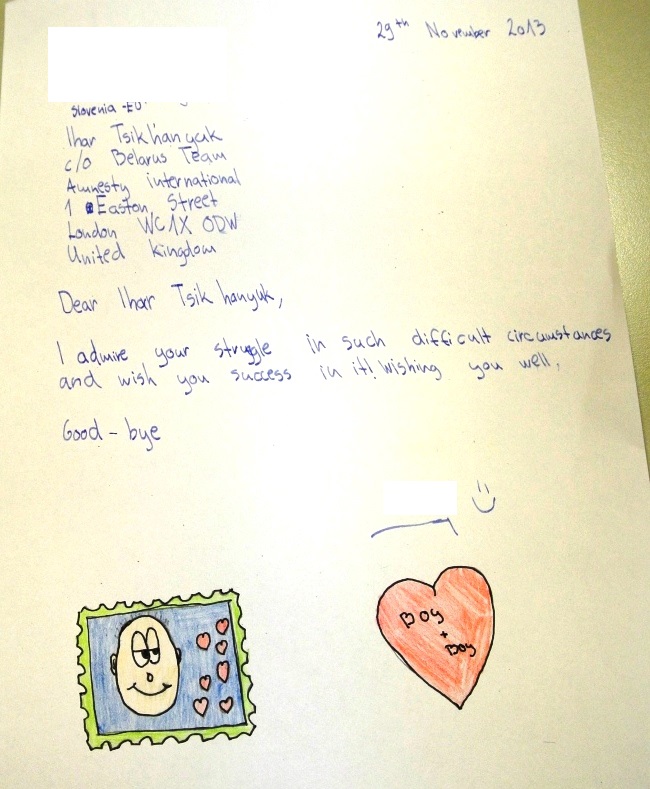 29th November 2013
Slovenia - EU
Ihar Tsikhanyuk
c/o Belarus Team
Amnesty international
1 Easton Street
London WC1X 0DW
United kingdom
Dear Ihar Tsikhanyuk,
I admire your struggle in such difficult circumstances
and wish you success in it! Wishing you well,
Good-bye
Boy
+
Boy